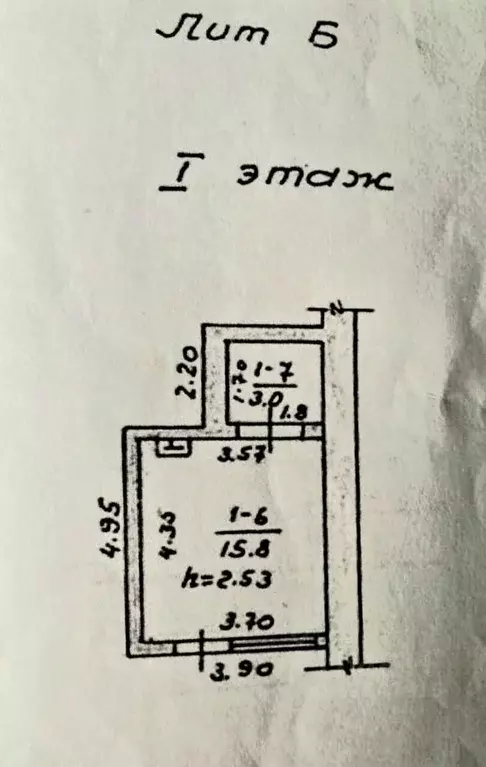 Лит Б
I этаж
2.20
1.70
1-7
3.0
1.8
3.57
4.95
4.35
1-6
15.8
h=2.53
3.70
3.90